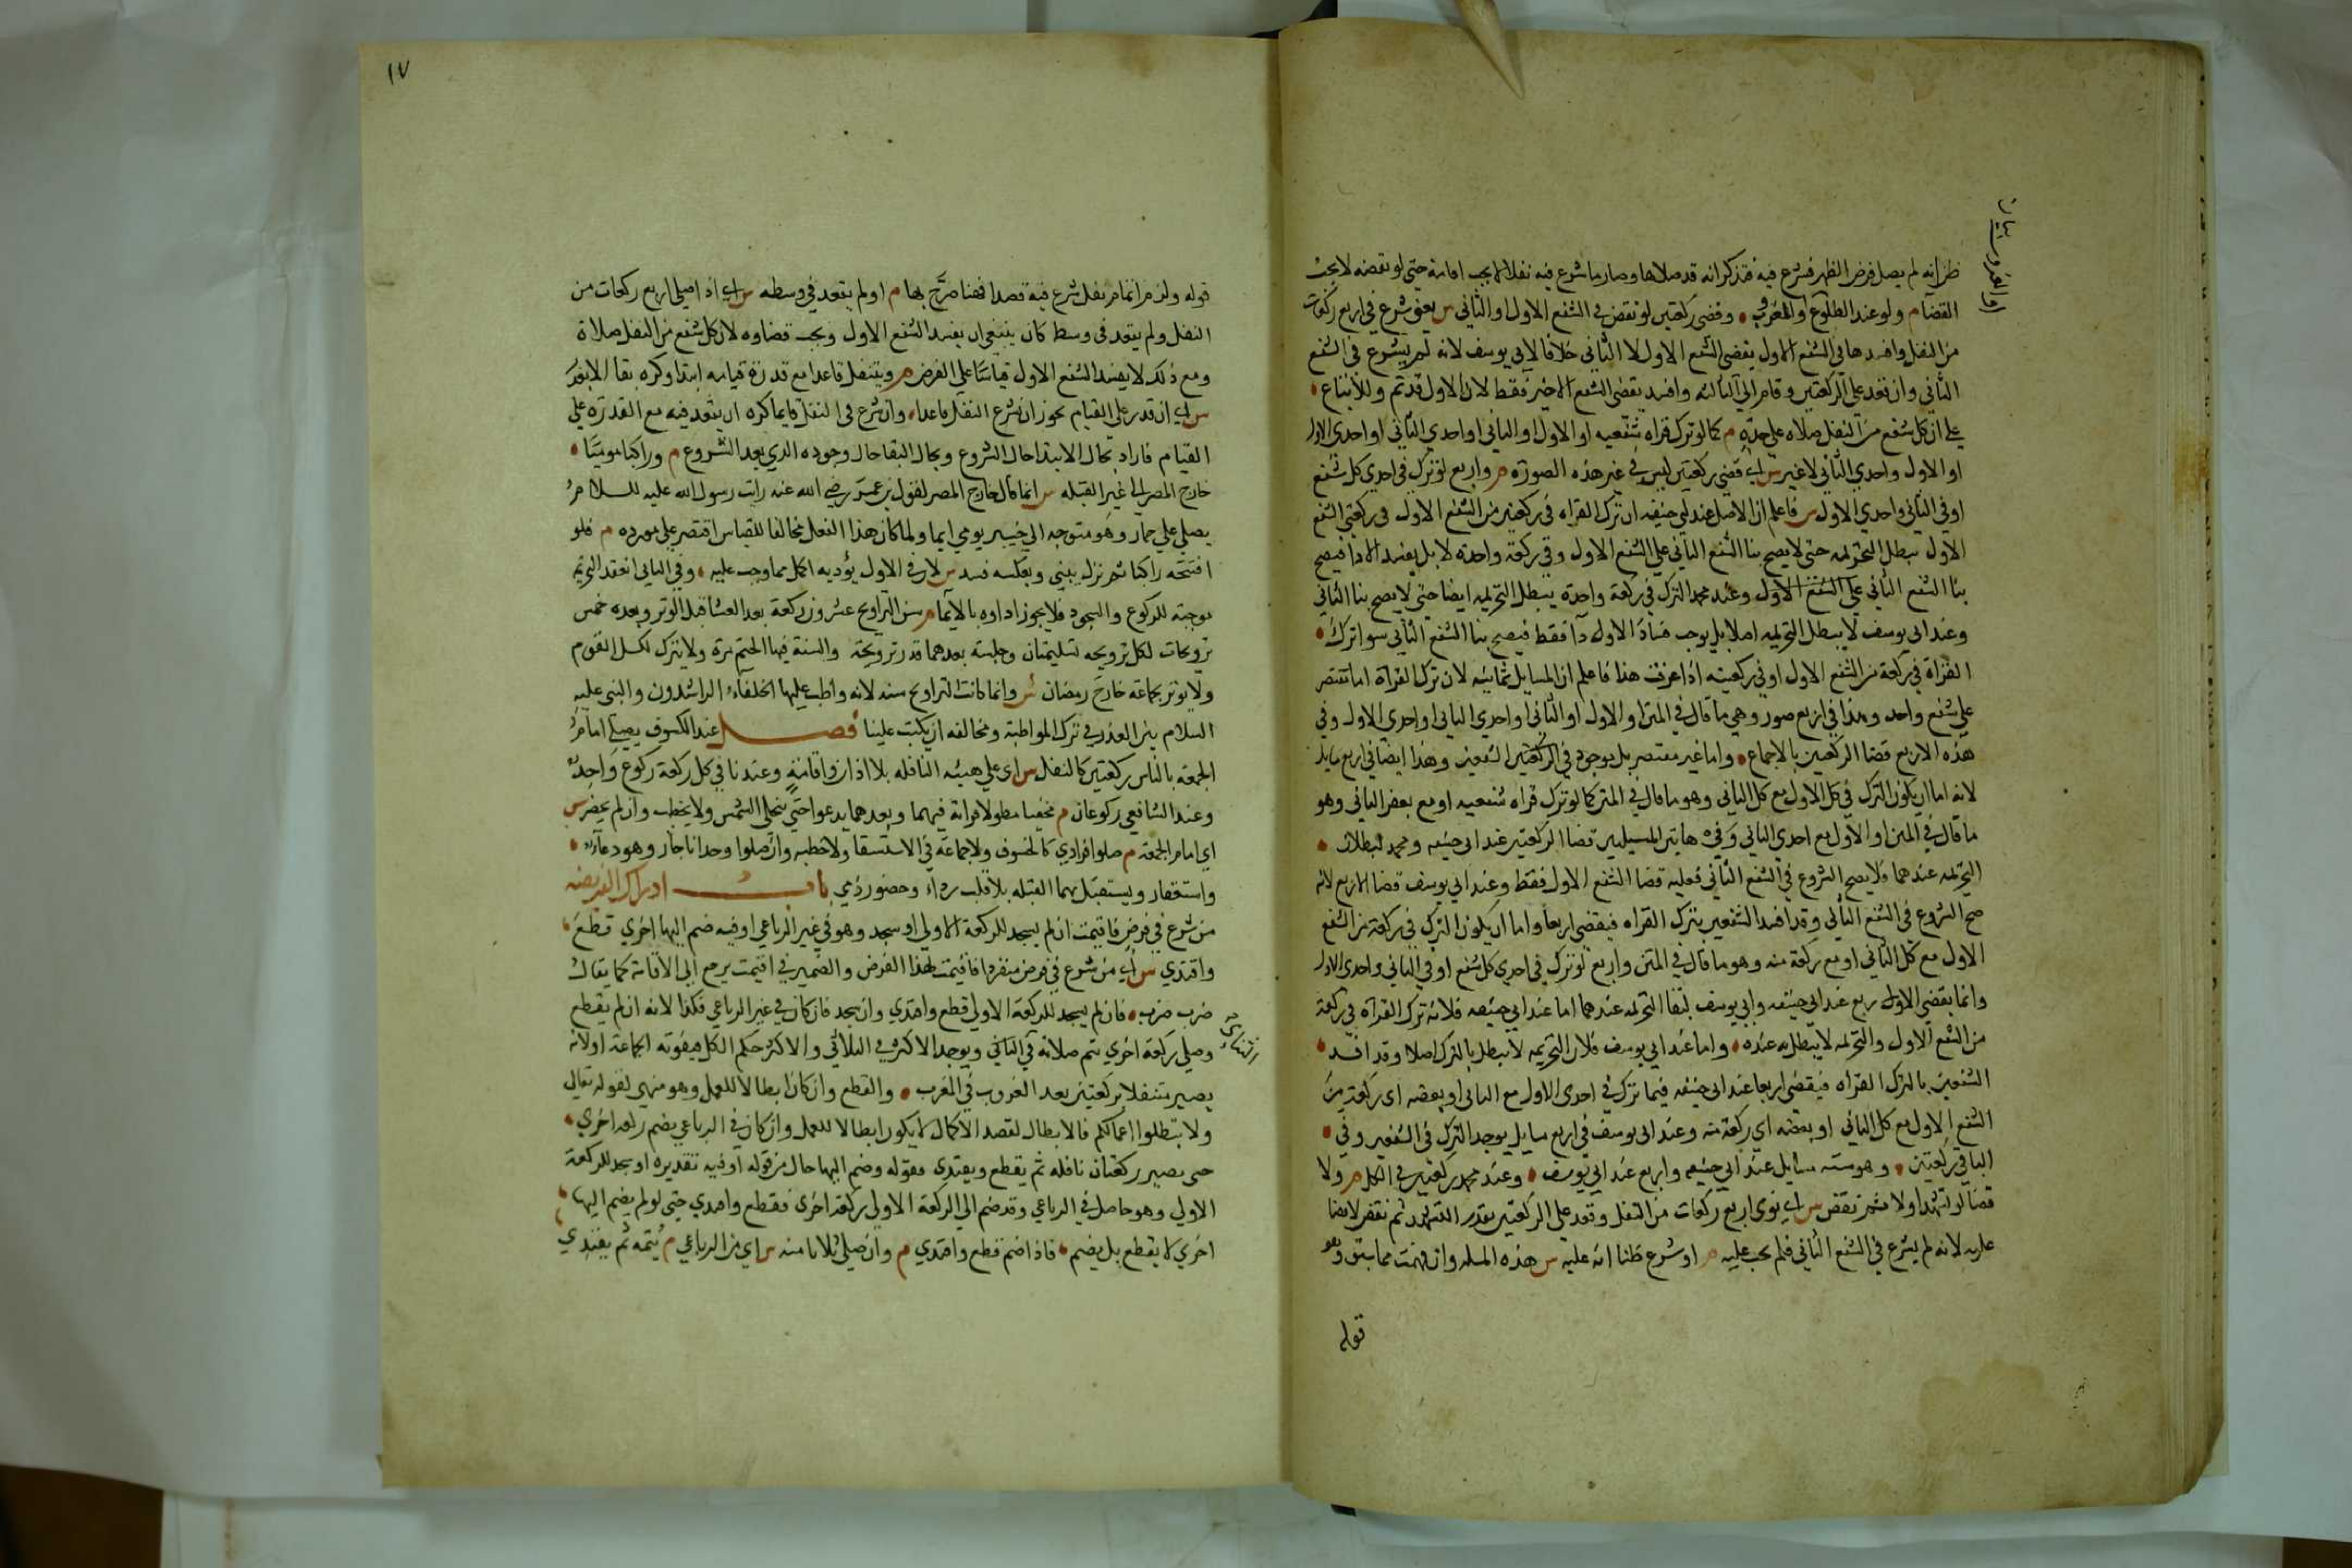 ظن انه لم يصل فرض الظهر فشرع فيه فتذكر انه قد صلاها وصار ما شرع فيه نفلا لا يجب اتمامه حتى لو نقضه لا يجب
القضا م ولو عند الطلوع او الغروب وقضى ركعتين لو نقض في الشفع الاول او الثاني س يعني شرع في اربع ركعات
من النفل وافسدها في الشفع الاول يقضى الشفع الاول لا الثاني خلافا لابي يوسف لانه لم يشرع في الشفع
الثاني وان قعد على الركعتين وقام الى الثالثه وافسد يقضى الشفع الاخير فقط لان الاول قد تم
على ان كل شفع من النفل صلاه على حده م كما لو ترك قراه شفعيه او الاول او الثاني او احدي الثاني او احدي الاول
او الاول واحدي الثاني لا غير س اي قضى ركعتين ليس في غير هذه الصوره م واربع لو ترك في احدي كل شفع
او في الثاني واحدي الاول س فاعلم ان الاصل عند ابي حنيفه ان ترك القراه في ركعتين من الشفع الاول في ركعتي الشفع
الاول يبطل التحريمه حتى لا يصح بنا الشفع الثاني على الشفع الاول وفي ركعة واحدة لا بل يفسد الادا فيصح
بنا الشفع الثاني على الشفع الاول وعند محمد الترك في ركعة واحدة يبطل التحريمه ايضا حتى لا يصح بنا الثاني
وعند ابي يوسف لا يبطل التحريمه اصلا بل يوجب فساد الادا فقط فيصح بنا الشفع الثاني سوا ترك
القراة في ركعة من الشفع الاول او في ركعتيه اذا عرفت هذا فاعلم ان المسايل ثمانيه لان ترك القراة اما مقتصر
على شفع واحد وهذا في اربع صور وهي ما قال في المتن او الاول او الثاني او احدي الثاني او احدي الاول وفي
هذه الاربع قضا الركعتين بالاجماع واما غير مقتصر بل موجود في الشفعين وهذا ايضا في اربع مسايل
لانه اما ان يكون الترك في كل الاول مع كل الثاني وهو ما قال في المتن كما لو ترك قراه شفعيه او مع بعض الثاني وهو
ما قال في المتن او الاول مع احدي الثاني وفي هاتين المسيلتين قضا الركعتين عند ابي حنيفه ومحمد لبطلان
التحريمه عندهما فلا يصح الشروع في الشفع الثاني فعليه قضا الشفع الاول فقط وعند ابي يوسف قضا الاربع لانه
صح الشروع في الشفع الثاني وقد افسد الشفعين بترك القراه فيقضى اربعا واما ان يكون الترك في ركعة من الشفع
الاول مع كل الثاني او مع ركعة منه وهو ما قال في المتن واربع لو ترك في احدي كل شفع او في الثاني واحدى الاول
وانما يقضى الاربع عند ابي حنيفه وابي يوسف لبقا التحريمه عندهما اما عند ابي حنيفه فلانه ترك القراة في ركعة
من الشفع الاول والتحريمه لا يبطل به عنده واما عند ابي يوسف فلان التحريمه لا يبطل بالترك اصلا وقد افسد
الشفعين بالترك القراه فيقضى اربعا عند ابي حنيفه فيما ترك في احدى الاول مع الثاني او بعضه اى ركعة من
الشفع الاول مع كل الثاني او بعضه اي ركعة منه وعند ابى يوسف في اربع مسايل يوجد الترك في الشفعين وفي
الباقي ركعتين وهو سته مسايل عند ابي حنيفه واربع عند ابي يوسف وعند محمد ركعتين في الكل م ولا
قضا لو تشهد اولا ثم نقض س اي نوى اربع ركعات من النفل وقعد على الركعتين بقدر التشهد ثم نقض لا قضا
عليه لانه لم يشرع في الشفع الثاني فلم يجب عليه م او شرع ظنا انه عليه س هذه المسله وان فهمت مما سبق وهو
قوله
١٧
قوله ولزم اتمام نفل شرع فيه قصدا فهنا صرح بها م او لم يقعد في وسطه س اي اذا صلى اربع ركعات من
النفل ولم يقعد في وسط كان ينبغي ان يفسد الشفع الاول ويجب قضاوه لان كل شفع من النفل صلاة
ومع ذلك لا يفسد الشفع الاول قياسا على الفرض م ويتنفل قاعدا مع قدرة قيامه ابتدا وكره بقا الا بعذر
س اي ان قدر على القيام يجوز ان يشرع النفل قاعدا وان شرع في النفل قايما كره ان يقعد فيه مع القدرة على
القيام فاراد بحال الابتدا حال الشروع وبحال البقا حال وجوده الذي بعد الشروع م وراكبا موميا
خارج المصر الى غير القبله س انما قال خارج المصر لقول بن عمر رضي الله عنه رايت رسول الله عليه السلام
يصلي على حمار وهو متوجه الى خيبر يومي ايما ولما كان هذا الفعل مخالفا للقياس اقتصر على مورده م فلو
افتتحه راكبا ثم نزل يبني وبعكسه فسد س لان في الاول يؤديه اكمل مما وجب عليه وفي الثاني انعقد التحريم
موجبة للركوع والسجود فلا يجوز اداوه بالايما م سن التراويح عشرون ركعة بعد العشا قبل الوتر وبعده خمس
ترويحات لكل ترويحه تسليمتان وجلسة بعدهما قدر ترويحة والسنة فيها الختم مرة ولا يترك لكسل القوم
ولا يوتر بجماعة خارج رمضان س وانما كانت التراويح سنه لانه واظب عليها الخلفاء الراشدون والنبى عليه
السلام بين العذر في ترك المواظبة ومخافة ان يكتب علينا فصل عند الكسوف يصلي امام
الجمعة بالناس ركعتين كالنفل س اى على هيئه النافله بلا اذان واقامة وعندنا في كل ركعة ركوع واحد
وعند الشافعي ركوعان م مخفيا مطولا قراته فيهما وبعدهما يدعوا حتى تنجلى الشمس ولا يخطب وان لم يحضر س
اى امام الجمعة م صلوا فرادي كالخسوف ولا جماعة في الاستسقا ولا خطبه وان صلوا وحدانا جاز وهو دعاء
واستغفار ويستقبل بهما القبله بلا قلب رداء وحضور ذمي باب ادراك الفريضه
من شرع في فرض فاقيمت ان لم يسجد للركعة الاولي او سجد وهو في غير الرباعي او فيه وضم اليها اخري قطع
واقتدي س اي من شرع في فرض منفردا فاقيمت لهذا الفرض والضمير في اقيمت يرجع الى الاقامة كما يقال
ضرب ضرب فان لم يسجد للركعة الاولي قطع واقتدي وان سجد فان كان في غير الرباعي فكذا لانه ان لم يقطع
وصلى ركعة اخري يتم صلاته في الثاني ويوجد الاكثر في الثلاثي والاكثر حكم الكل فيفوته الجماعة او لانه
يصير متنفلا بركعتين بعد الغروب في المغرب والقطع وان كان ابطالا للعمل وهو منهي لقوله تعالى
ولا تبطلوا اعمالكم فالابطال لقصد الاكمال لا يكون ابطالا للعمل وان كان في الرباعي يضم ركعة اخري
حتى يصير ركعتان نافله ثم يقطع ويقتدى فقوله وضم اليها حال من قوله او فيه تقديره او سجد للركعة
الاولي وهو حاصل في الرباعي وقد ضم الى الركعة الاولى ركعة اخرى فقطع واقتدي حتى لو لم يضم اليها
اخري لا يقطع بل يضم فاذا ضم قطع واقتدي م وان صلى ثلاثا منه س اي من الرباعي م يتمه ثم يقتدي